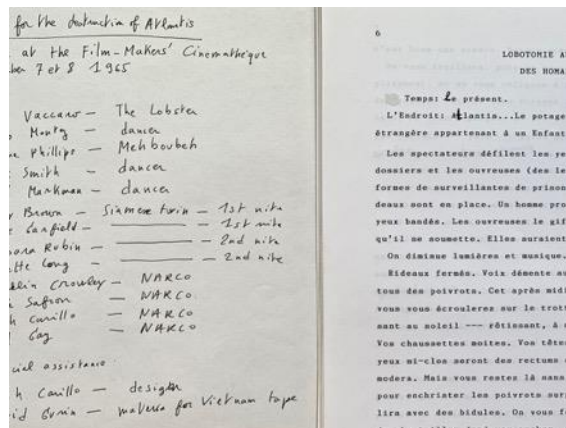 for the destruction of Atlantis
at the Film-Makers' Cinematheque
ber 7 et 8 1965
Vaccaro — The Lobster
Monty — dancer
Phillips — Mehboubeh
Smith — dancer
Markman — dancer
Brown — Siamese twin — 1st nite
Garfield — ——— — 1st nite
Rubin — ——— — 2nd nite
Long — ——— — 2nd nite
Crowley — NARCO
Safron — NARCO
Carillo — NARCO
Gay — NARCO
cial assistance
h. Carillo — design
for Vietnam tape
6
LOBOTOMIE A
DES HOMA
Temps: Le présent.
L'Endroit: Atlantis...Le potage
étrangère appartenant à un Enfant
Les spectateurs défilent les ye
dossiers et les ouvreuses (des le
formes de surveillantes de prison
deaux sont en place. Un homme pro
yeux bandés. Les ouvreuses le gif
qu'il se soumette. Elles auraient
On diminue lumières et musique.
Rideaux fermés. Voix démente au
tous des poivrots. Cet après midi
vous vous écrouleres sur le trott
sant au soleil --- rôtissant, à
Vos chaussettes moites. Vos têtes
yeux mi-clos seront des rectums
modera. Mais vous restes là sans
pour enchrister les poivrots sur
lira avec des bidules. On vous f